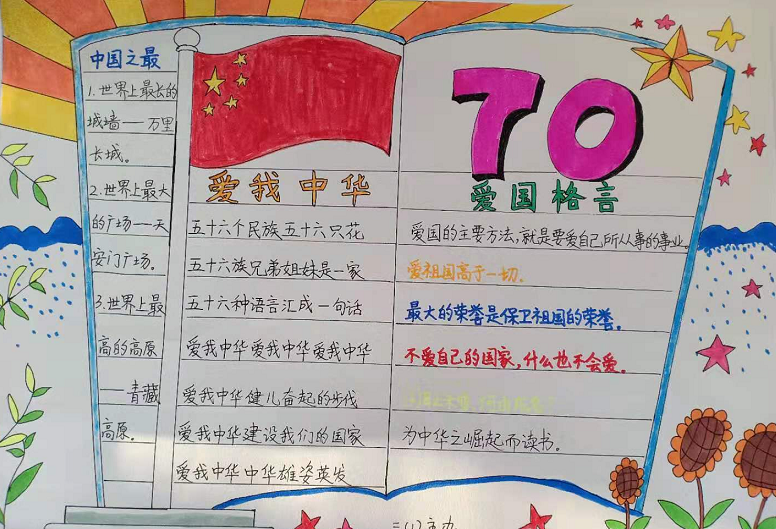 中国之最
1.世界上最长的
城墙——万里
长城。
2.世界上最大
的广场——天
安门广场。
3.世界上最
高的高原
——青藏
高原。
爱我中华
五十六个民族五十六只花
五十六族兄弟姐妹是一家
五十六种语言汇成一句话
爱我中华爱我中华爱我中华
爱我中华健儿奋起的步伐
爱我中华建设我们的国家
爱我中华中华雄姿英发
70
爱国格言
爱国的主要方法,就是要爱自己所从事的事业。
爱祖国高于一切.
最大的荣誉是保卫祖国的荣誉。
不爱自己的国家,什么也不会爱。
为中华之崛起而读书.